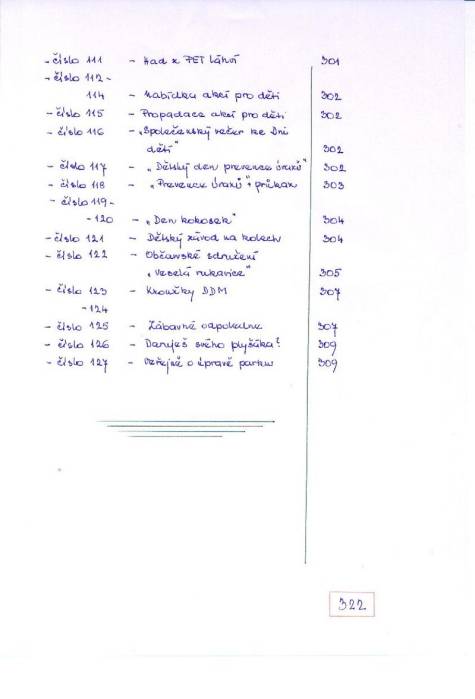 - číslo 111 - Had z PET láhví 301
- číslo 112 -
114 - Nabídka akcí pro děti 302
- číslo 115 - Propadace akcí pro děti 302
- číslo 116 - „Společenský večer ke Dni
dětí" 302
- číslo 117 - „Dětský den prevence úrazů" 302
- číslo 118 - „Prevence úrazů" + průkaz 303
- číslo 119 -
- 120 - „Den kokosek" 304
- číslo 121 - Dětský závod na kolech 304
- číslo 122 - Občanské sdružení
„Veselá rukavice" 305
- číslo 123 - Kroužky DDM 307
- 124
- číslo 125 - Zábavné odpoledne 307
- číslo 126 - Daruješ svého plyšáka? 309
- číslo 127 - Veřejně o úpravě parku 309
322